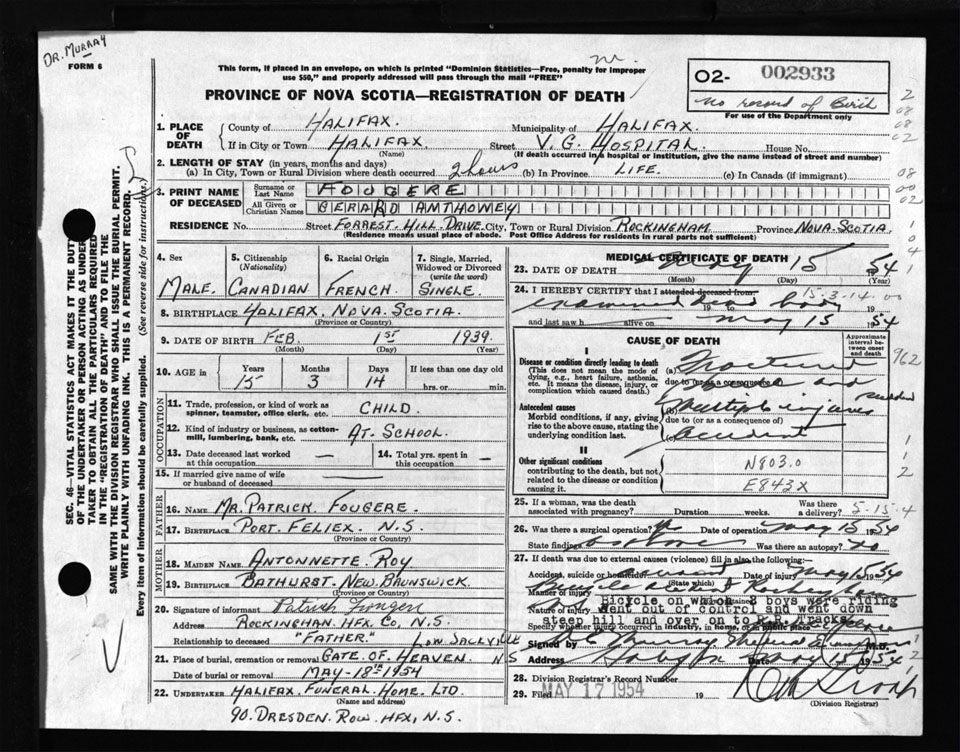 DR. MURRAY
FORM 6
This form, if placed in an envelope, on which is printed "Dominion Statistics—Free, penalty for improper
use $50," and properly addressed will pass through the mail "FREE"
PROVINCE OF NOVA SCOTIA—REGISTRATION OF DEATH
O2- 002933
no record of Birth
For use of the Department only
1. PLACE OF DEATH
County of HALIFAX. Municipality of HALIFAX.
If in City or Town HALIFAX Street V. G. HOSPITAL. House No.
(Name) (If death occurred in a hospital or institution, give the name instead of street and number)
2. LENGTH OF STAY (in years, months and days)
(a) In City, Town or Rural Division where death occurred 2 hours (b) In Province LIFE. (c) In Canada (if immigrant)
3. PRINT NAME OF DECEASED
Surname or Last Name FOUGERE
All Given or Christian Names GERARD AMTHOWEY
RESIDENCE No. Street FORREST. HILL. DRIVE. City, Town or Rural Division ROCKINGHAM Province NOVA. SCOTIA.
(Residence means usual place of abode. Post Office Address for residents in rural parts not sufficient)
SEC. 46—VITAL STATISTICS ACT MAKES IT THE DUTY
OF THE UNDERTAKER OR PERSON ACTING AS UNDER-
TAKER TO OBTAIN ALL THE PARTICULARS REQUIRED
IN THE "REGISTRATION OF DEATH" AND TO FILE THE
SAME WITH THE DIVISION REGISTRAR WHO SHALL ISSUE THE BURIAL PERMIT.
WRITE PLAINLY WITH UNFADING INK. THIS IS A PERMANENT RECORD.
Every item of information should be carefully supplied. (See reverse side for instructions.)
4. Sex MALE.
5. Citizenship (Nationality) CANADIAN
6. Racial Origin FRENCH.
7. Single, Married, Widowed or Divorced (write the word) SINGLE.
8. BIRTHPLACE HALIFAX, NOVA. SCOTIA.
(Province or Country)
9. DATE OF BIRTH FEB. 1ST 1939.
(Month) (Day) (Year)
10. AGE in Years 15 Months 3 Days 14 If less than one day old
hrs. or min.
OCCUPATION
11. Trade, profession, or kind of work as spinner, teamster, office clerk, etc. CHILD.
12. Kind of industry or business, as cotton-mill, lumbering, bank, etc. AT. SCHOOL.
13. Date deceased last worked at this occupation —
14. Total yrs. spent in this occupation —
15. If married give name of wife or husband of deceased —
FATHER
16. NAME MR. PATRICK. FOUGERE.
17. BIRTHPLACE PORT. FELIEX. N.S.
(Province or Country)
MOTHER
18. MAIDEN NAME ANTONNETTE. ROY
19. BIRTHPLACE BATHURST. NEW. BRUNSWICK.
(Province or Country)
20. Signature of informant
Address ROCKINGHAM. HFX. CO, N.S.
Relationship to deceased "FATHER." LOW. SACKVILLE
21. Place of burial, cremation or removal GATE. OF. HEAVEN. N S
Date of burial or removal MAY-18TH 1954
22. UNDERTAKER HALIFAX. FUNERAL. HOME. LTD.
(Name and address)
90. DRESDEN. ROW. HFX, N.S.
MEDICAL CERTIFICATE OF DEATH
23. DATE OF DEATH May 15 54
(Month) (Day) (Year)
24. I HEREBY CERTIFY that I attended deceased from: 15-3-14.00
examined dead body 19
and last saw h alive on May 15 1954
CAUSE OF DEATH
Approximate interval between onset and death
I
Disease or condition directly leading to death
(This does not mean the mode of dying, e.g., heart failure, asthenia, etc. It means the disease, injury, or complication which caused death.)
(a) Fractured
due to (or as a consequence of) and sudden
Antecedent causes
Morbid conditions, if any, giving rise to the above cause, stating the underlying condition last.
(b) Multiple injuries
due to (or as a consequence of)
(c) accident
II
Other significant conditions
contributing to the death, but not related to the disease or condition causing it.
N803.0
E843X
25. If a woman, was the death associated with pregnancy? Duration weeks. Was there a delivery? 5-15-4
26. Was there a surgical operation? Date of operation May 15 1954
State findings Was there an autopsy? no
27. If death was due to external causes (violence) fill in also the following:
Accident, suicide or homicide accident Date of injury May 15 1954
(State which)
Manner of injury
Nature of injury Bicycle on which 2 boys were riding
went out of control and went down
steep hill and over on to R.R. Tracks.
Specify whether injury occurred in industry, in home, or in public place
Signed by M.D.
Address Halifax Date May 15 1954
28. Division Registrar's Record Number
29. Filed MAY 17 1954 19
(Division Registrar)